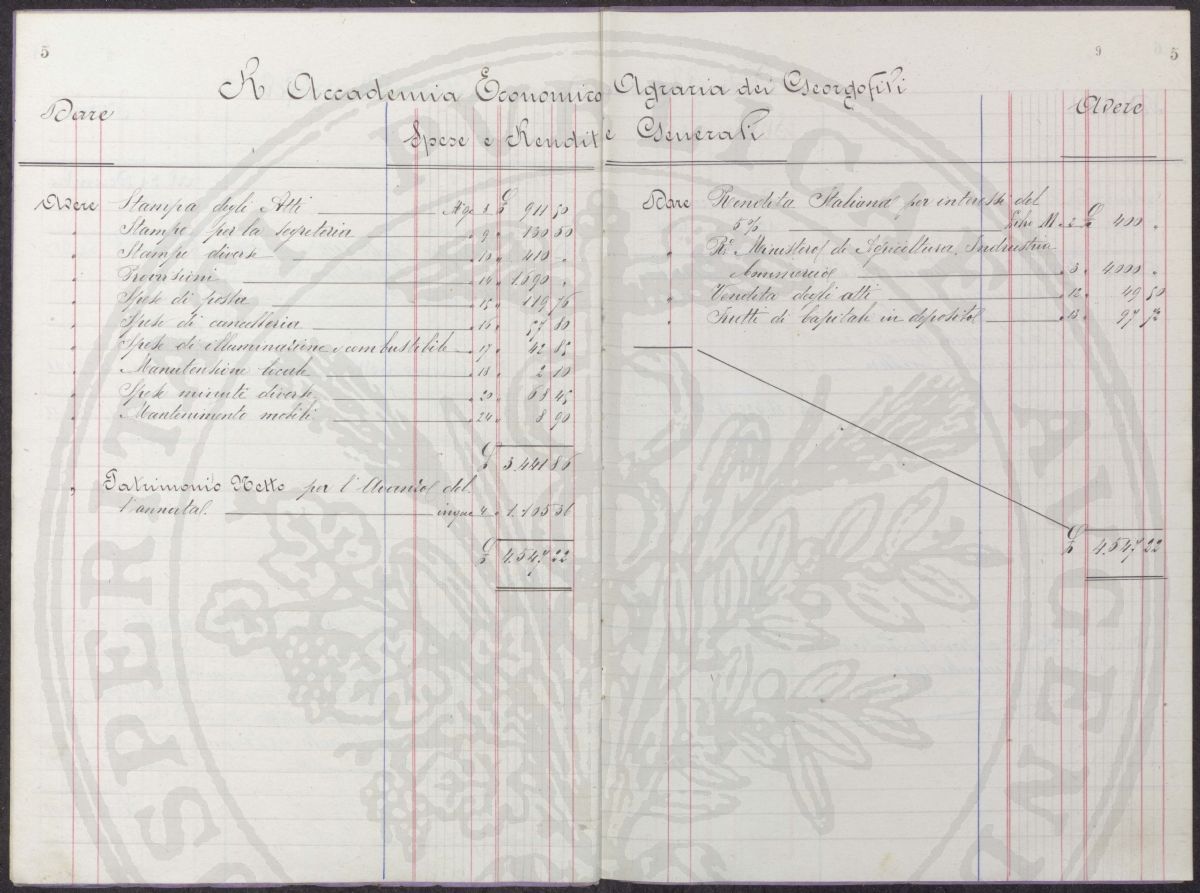 5
9
5
R Accademia Economico Agraria dei Georgofili
Dare
Avere
Spese e Rendite Generali
Avere Stampa degli Atti 8 £ 911 50
" Stampe per la segreteria " 9 " 130 50
" Stampe diverse " 10 " 410 "
" Provvisioni " 14 " 1.690 "
" Spese di posta " 15 " 119 76
" Spese di cancelleria " 16 " 57 80
" Spese di illuminazione e combustibile " 17 " 42 85
" Manutenzione locale " 18 " 2 10
" Spese minute diverse " 20 " 68 45
" Mantenimento mobili " 24 " 8 90
£ 3.441 86
" Patrimonio Netto per l'Avanzo del
l'annata. 4 " 1.105 36
£ 4.547 22
Dare Rendita Italiana per interessi del
5% 2 £ 400 "
" Ro Ministero di Agricoltura Industria
Commercio " 3 " 4000 "
" Vendita degli atti " 12 " 49 50
" Frutti di Capitali in deposito " 13 " 97 72
£ 4.547 22
PUBLICAE
PROSPERITATI
AUGENDAE